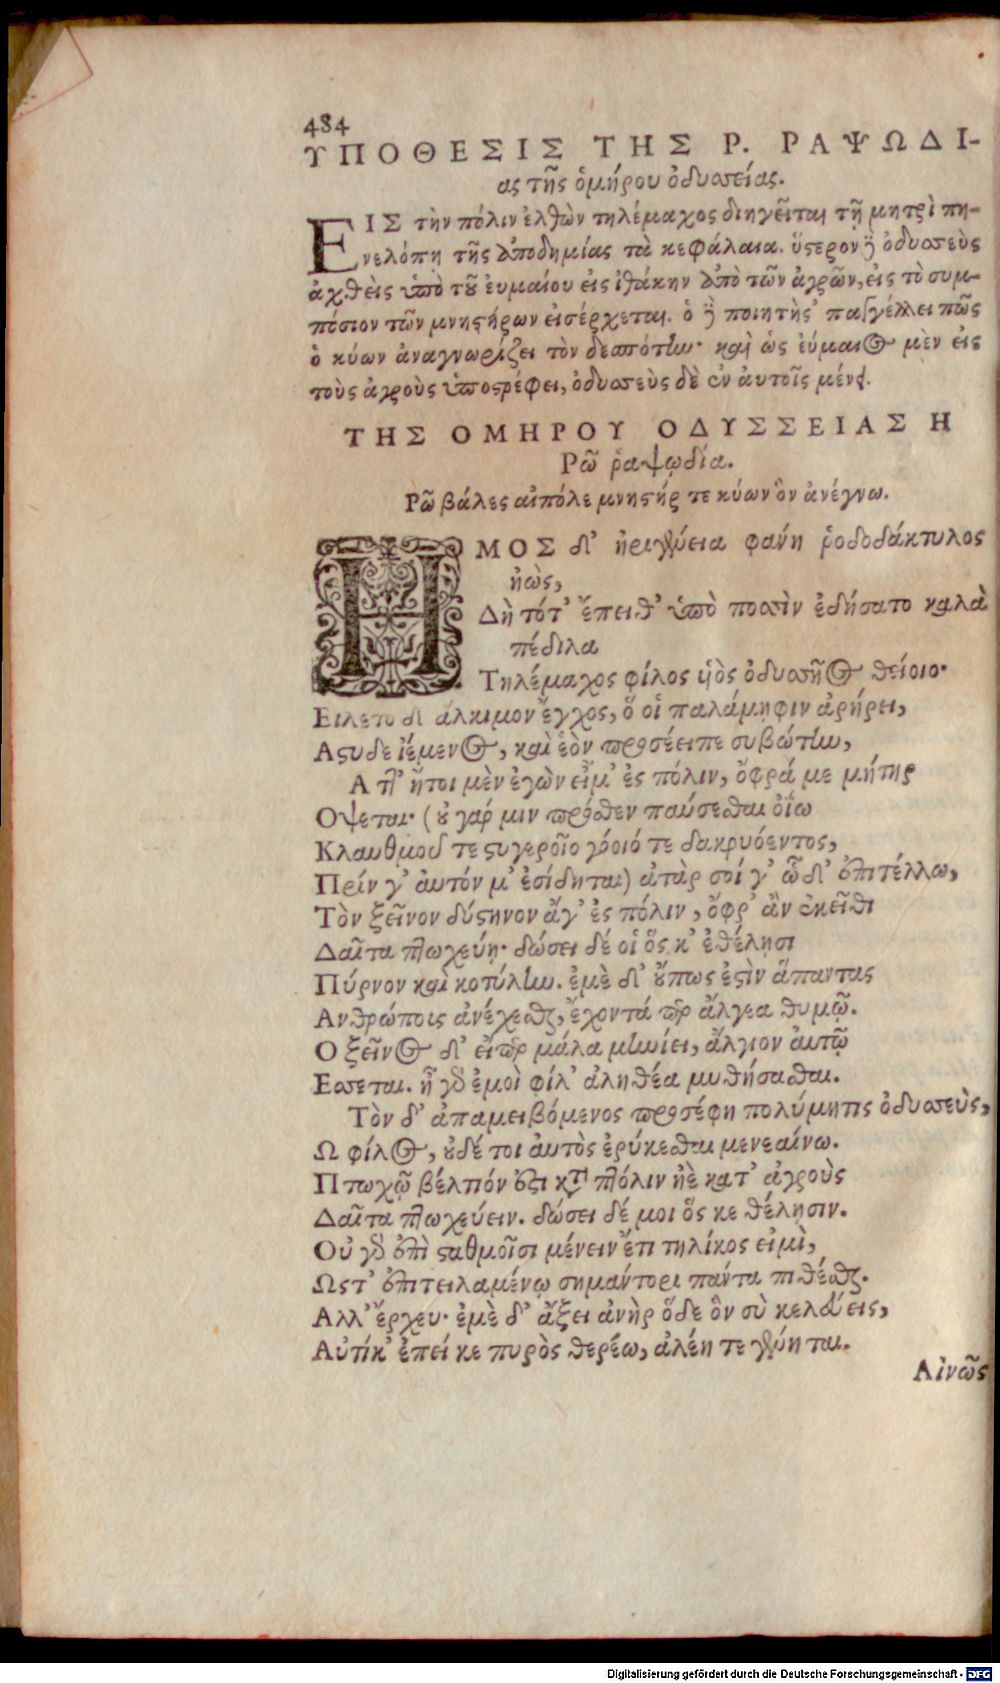 484
ΥΠΟΘΕΣΙΣ ΤΗΣ Ρ. ΡΑΨΩΔΙ-
ας τῆς ὁμήρου ὀδυσσείας.
ΕΙΣ τὴν πόλιν ἐλθὼν τηλέμαχος διηγεῖται τῇ μητρὶ πη-
νελόπῃ τῆς ἀποδημίας τὰ κεφάλαια. ὕστερον ἢ ὀδυσσεὺς
ἀχθεὶς ὑπὸ τοῦ ἐυμαίου εἰς ἰθάκην ἀπὸ τῶν ἀγρῶν, εἰς τὸ συμ-
πόσιον τῶν μνηστήρων εἰσέρχεται. ὁ ἢ ποιητὴς παραγγέλλει πῶς
ὁ κύων ἀναγνωρίζει τὸν δεσπότην· καὶ ὡς ἐύμαιος μὲν εἰς
τοὺς ἀγροὺς ὑποστρέφει, ὀδυσσεὺς δὲ ἐν ἀυτοῖς μένει.
ΤΗΣ ΟΜΗΡΟΥ ΟΔΥΣΣΕΙΑΣ Η
Ρῶ ῥαψῳδία.
Ρῶ βάλες αἰπόλε μνηστήρ τε κύων ὃν ἀνέγνω.
ΗΜΟΣ δ' ἠριγένεια φανη ῥοδοδάκτυλος
ἠὼς,
Δὴ τότ' ἔπειθ' ὑπὸ ποσσὶν ἐδήσατο καλὰ
πέδιλα
Τηλέμαχος φίλος υἱὸς ὀδυσσῆος θείοιο·
Ειλετο δ' ἄλκιμον ἔγχος, ὅ οἱ παλάμηφιν ἀρήρει,
Αστυδε ἱέμενος, καὶ ἑὸν προσέειπε συβώτην,
Α ττ' ἤτοι μὲν ἐγὼν εἶμ' ἐς πόλιν, ὄφρά με μήτηρ
Οψεται· (οὐ γάρ μιν πρόσθεν παύσεσθαι ὀΐω
Κλαυθμοῦ τε στυγεροῖο γόοιό τε δακρυόεντος,
Πρίν γ' ἀυτόν μ' ἐσίδηται) ἀτὰρ σοί γ' ὧδ' ἐπιτέλλω,
Τὸν ξεῖνον δύστηνον ἄγ' ἐς πόλιν, ὄφρ' ἂν ἐκεῖθι
Δαῖτα πτωχεύῃ· δώσει δέ οἱ ὅς κ' ἐθέλησι
Πύρνον καὶ κοτύλην. ἐμὲ δ' οὔπως ἐστὶν ἅπαντας
Ανθρώποις ἀνέχεσθαι, ἔχοντά περ ἄλγεα θυμῷ.
Ο ξεῖνος δ' εἴπερ μάλα μηνίει, ἄλγιον ἀυτῷ
Εσσεται. ἦ γὰρ ἐμοὶ φίλ' ἀληθέα μυθήσασθαι.
Τὸν δ' ἀπαμειβόμενος προσέφη πολύμητις ὀδυσσεὺς,
Ω φίλος, οὐδέ τοι ἀυτὸς ἐρύκεσθαι μενεαίνω.
Πτωχῷ βέλτιόν ἐστι κατὰ πτόλιν ἠὲ κατ' ἀγροὺς
Δαῖτα πτωχεύειν. δώσει δέ μοι ὅς κε θέλησιν.
Οὐ γὰρ ἐπὶ σταθμοῖσι μένειν ἔτι τηλίκος εἰμὶ,
Ωστ' ἐπιτειλαμένῳ σημάντορι πάντα πιθέσθαι.
Αλλ' ἔρχευ· ἐμὲ δ' ἄξει ἀνὴρ ὅδε ὃν σὺ κελεύεις,
Αὐτίκ' ἐπεί κε πυρὸς θερέω, ἀλέη τε γένηται.
Αἰνῶς
Digitalisierung gefördert durch die Deutsche Forschungsgemeinschaft - DFG